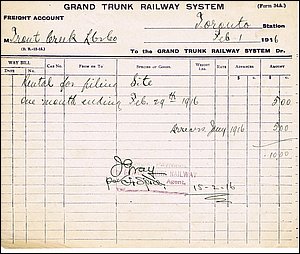 GRAND TRUNK RAILWAY SYSTEM
(Form 34A.)
FREIGHT ACCOUNT
Toronto Station
Feb 1 1916
M Trout Creek
To the GRAND TRUNK RAILWAY SYSTEM Dr.
WAY BILL
DATE No. CAR NO. FROM OR TO SPECIES OF GOODS WEIGHT LBS. RATE ADVANCES AMOUNT
Rental for piling Site
One month ending Feb. 29th 1916 5 00
Arrears Jany 1916 5 00
10.00
J Gray
RAILWAY
Agent,
15-2-16